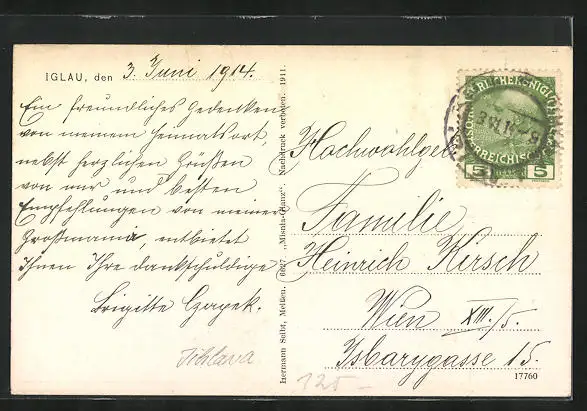 IGLAU, den 3. Juni 1914.
Ein freundliches Gedenken
von meinem Heimatsort,
nebst herzlichen Grüßen
von mir und besten
Empfehlungen von meiner
Großmama, entbietet
Ihnen Ihre dankschuldige
Brigitte Czapek.
Jihlava
Hermann Seibt, Meißen. 6027 „Misnia-Glanz“. Nachdruck verboten. 1911.
125-
Hochwohlgeb
Familie
Heinrich Kersch
Wien XIII/5.
Isbarygasse 15.
17760
5 5